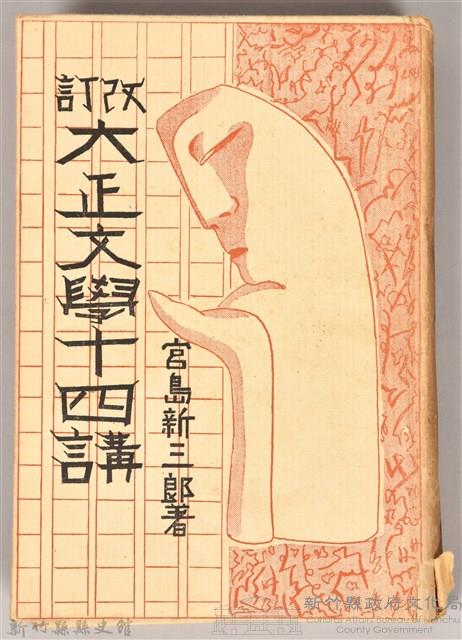 改訂
大正文學十四講
宮島新三郎著
新竹縣政府文化局
Cultural Affairs Bureau of Hsinchu
County Government
新竹縣縣史館